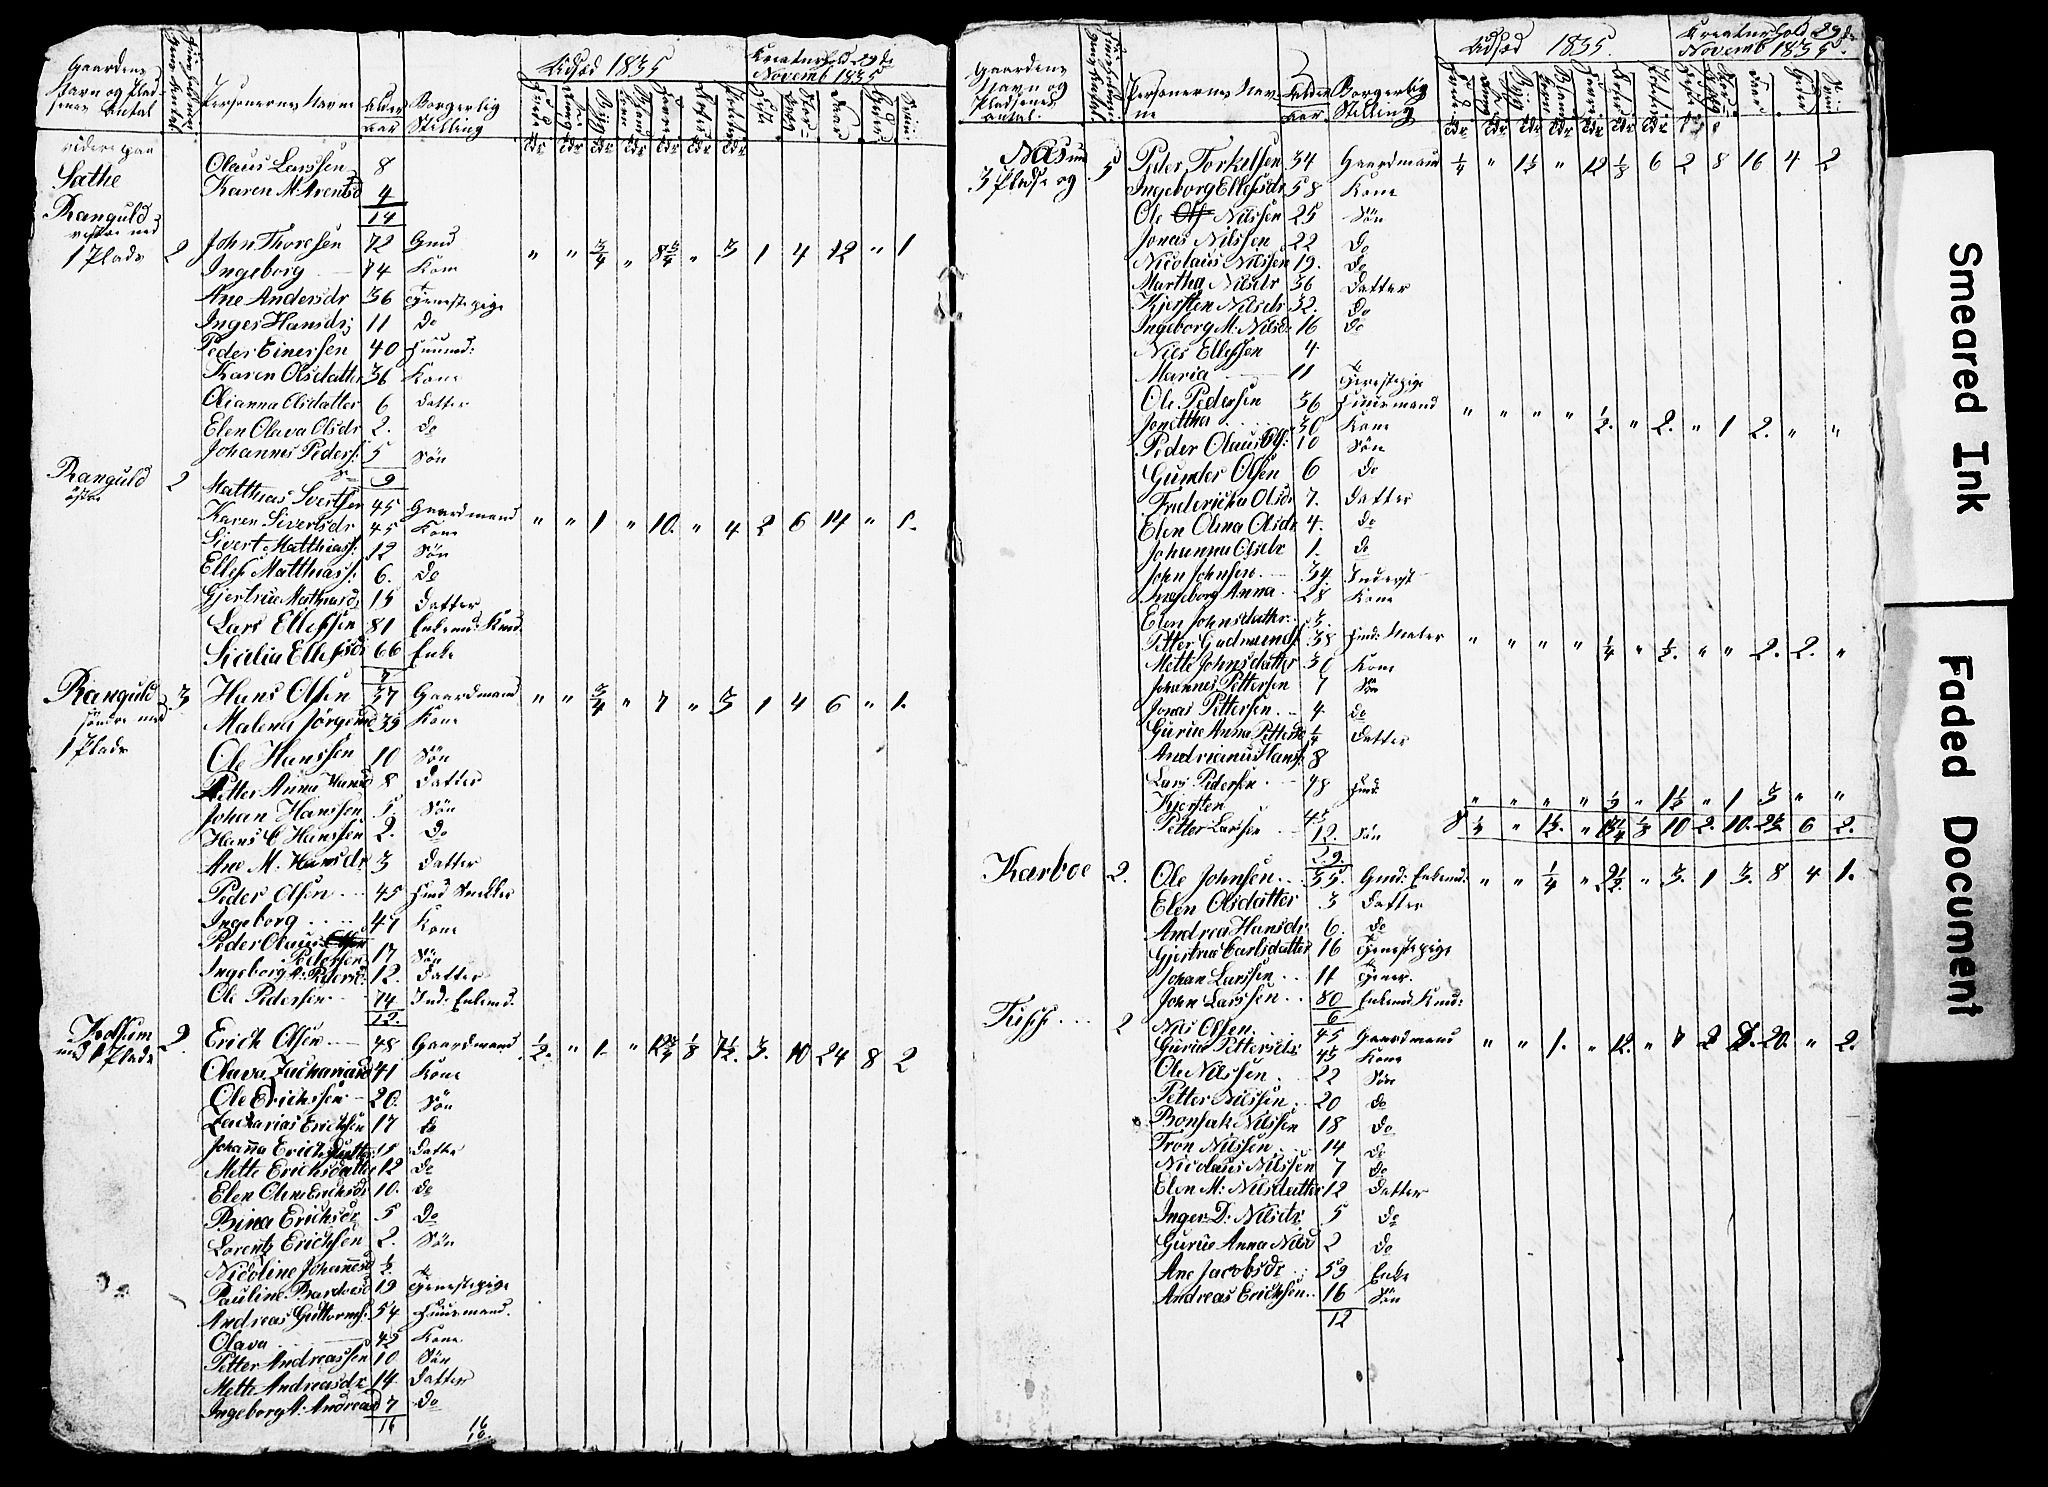 Gaardens
Navn og Plad-
senes Antal
Personernes Navne
Alder
Aar
Borgerlig
Stilling
Udsæd 1835
Kreaturhold 29de
Novemb 1835
videre paa
Sathe
Olaus Larssen 8
Karen M. Arentsd 4
14
Ranguld
vestre med
1 Plads 2 John Thoresen 72 Gmd " " 3/4 " 8 3/4 " 3 1 4 12 " 1
Ingeborg 74 Kone
Ane Andersdr 36 Tjenestepige
Inger Hansdr 11 do
Peder Einersen 40 Huusmd:
Karen Olsdatter 36 Kone
Olianna Olsdatter 6 Datter
Elen Olava Olsdr 2. do
Johannes Peders: 5 Søn
9
Ranguld 2
østre
Matthias Sivertsen 45 Gaardmand " " 1 " 10. " 4 2 6 14 " 1.
Karen Sivertsdr 45 Kone
Sivert Matthiass: 12 Søn
Ellef Matthiass: 6. do
Gjertrue Mathiasd 15 Datter
Lars Ellefsen 81 Enkemd: Kaud.
Sicilia Ellefsdr 66 Enke
7
Ranguld 3 Hans Olsen 37 Gaardmand " " 3/4 " 7 " 3 1 4 6 " 1.
søndre med
1 Plads
Malena Jørgensd 39 Kone
Ole Hanssen 10 Søn
Petter Anna Hansd 8 Datter
Johan Hanssen 5. Søn
Hans C Hanssen 2. do
Ane M. Hansdr 3 Datter
Peder Olsen 45 Hmd Snekker
Ingeborg 47 Kone
Peder Olaus
Pedersen 17 Søn
Ingeborg A: Pedersd: 12. Datter
Ole Pedersen 74 Ind: Enkemd.
12.
med 1 Plads 2 Erich Olsen 48 Gaardmand 1/2. " 1. " 1/8 7 1/2. 3. 10 24 8 2
Olava Zachariasd 41 Kone
Ole Erichsen 20. Søn
Zacharias Erichsen 17 do
Johanna Erichsdatter 15 Datter
Mette Erichsdatter 12 do
Elen Oline Erichsdr 10. do
Bina Erichsdr 5 do
Lorentz Erichsen 2. Søn
Nicoline Johannesd 1/2.
Pauline 19 Tjenestepige
Andreas Guttorms: 54 Huusmand.
Olava 42 Kone
Petter Andreassen 10 Søn
Mette Andreasdr 14 Datter
Ingeborg A: Andreasd 7 do
16
16
16.
Gaardens
Navn og
Pladsenes
Antal.
Personernes Nav-
ne
Alder
Aar
Borgerlig
Stilling
Udsæd 1835.
Kreaturhold 29de
Novemb 1835.
Næs med 5
3 Pladse og
Peder Torkelsen 34 Gaardmand 1/4 " 1 1/2 " 12 1/8 6 2 8 16 4 2
Ingeborg Ellefsdr 58 Kone
Ole Nilssen 25 Søn
Jonas Nilssen 22 do
Nicolaus Nilssen 19. do
Martha Nilsdr 36 Datter
Kjersten Nilsdr 32. do
Ingeborg M: Nilsdr 16 do
Nils Ellefsen 4.
Maria 11 Tjenestepige
Ole Pedersen 36 Huusmand " " " " 1/2. " 2. " 1 2. " "
Jonettha 30 Kone
Peder Olaus Ols: 10 Søn
Gunder Olsen 6 do
Fredericha Olsdr 7. Datter
Elen Olina Olsdr 4. do
Johanna Olsdr 1. do
John Johnsen 34 Inderst
Ingeborg Anna 28 Kone
Elen Johnsdatter 5.
Petter Gudmunds: 38 " " " " 1/4 " 1/2. " " 2. 2. "
Mette Johnsdatter 30 Kone
Johannes Pettersen 7 Søn
Jonas Pettersen 4. do
Gurue Anna Pettersd 1/4 Datter
Andrianus Hans: 8
Lars Pedersen 48 Hmd. " " " " " 1 1/2 " 1 3 " "
Kjersten 45
Petter Larssen 12. Søn
29
Karboe 2. Ole Johnsen 35. Gmd: Enkemd: " " 1/4 " 2 1/2 " 3. 1 3. 8 4 1.
Elen Olsdatter 3 Datter
Andrea Hansdr 6. do
Gjertrue Carlsdatter 16 Tjenestepige
Johan Larssen 11 Tjener.
John Larssen 80 Enkemd Kmd:
6
2 Nils Olsen 45 Gaardmand " " 1. " 12. " 7 2 20. " 2.
Gurue Pettersdr 45 Kone
Ole Nilssen 22 Søn
Petter Nilssen 20 do
Bonsak Nilssen 18 do
Tron Nilssen 14 do
Nicolaus Nilssen 7 do
Elen M: Nilsdatter 12 Datter
Inger D: Nilsdr 5 do
Gurue Anna Nilsd 2 do
Ane Jacobsdr 59 Enke
Andreas Erichsen 16 Søn
12
Smeared Ink
Faded Document